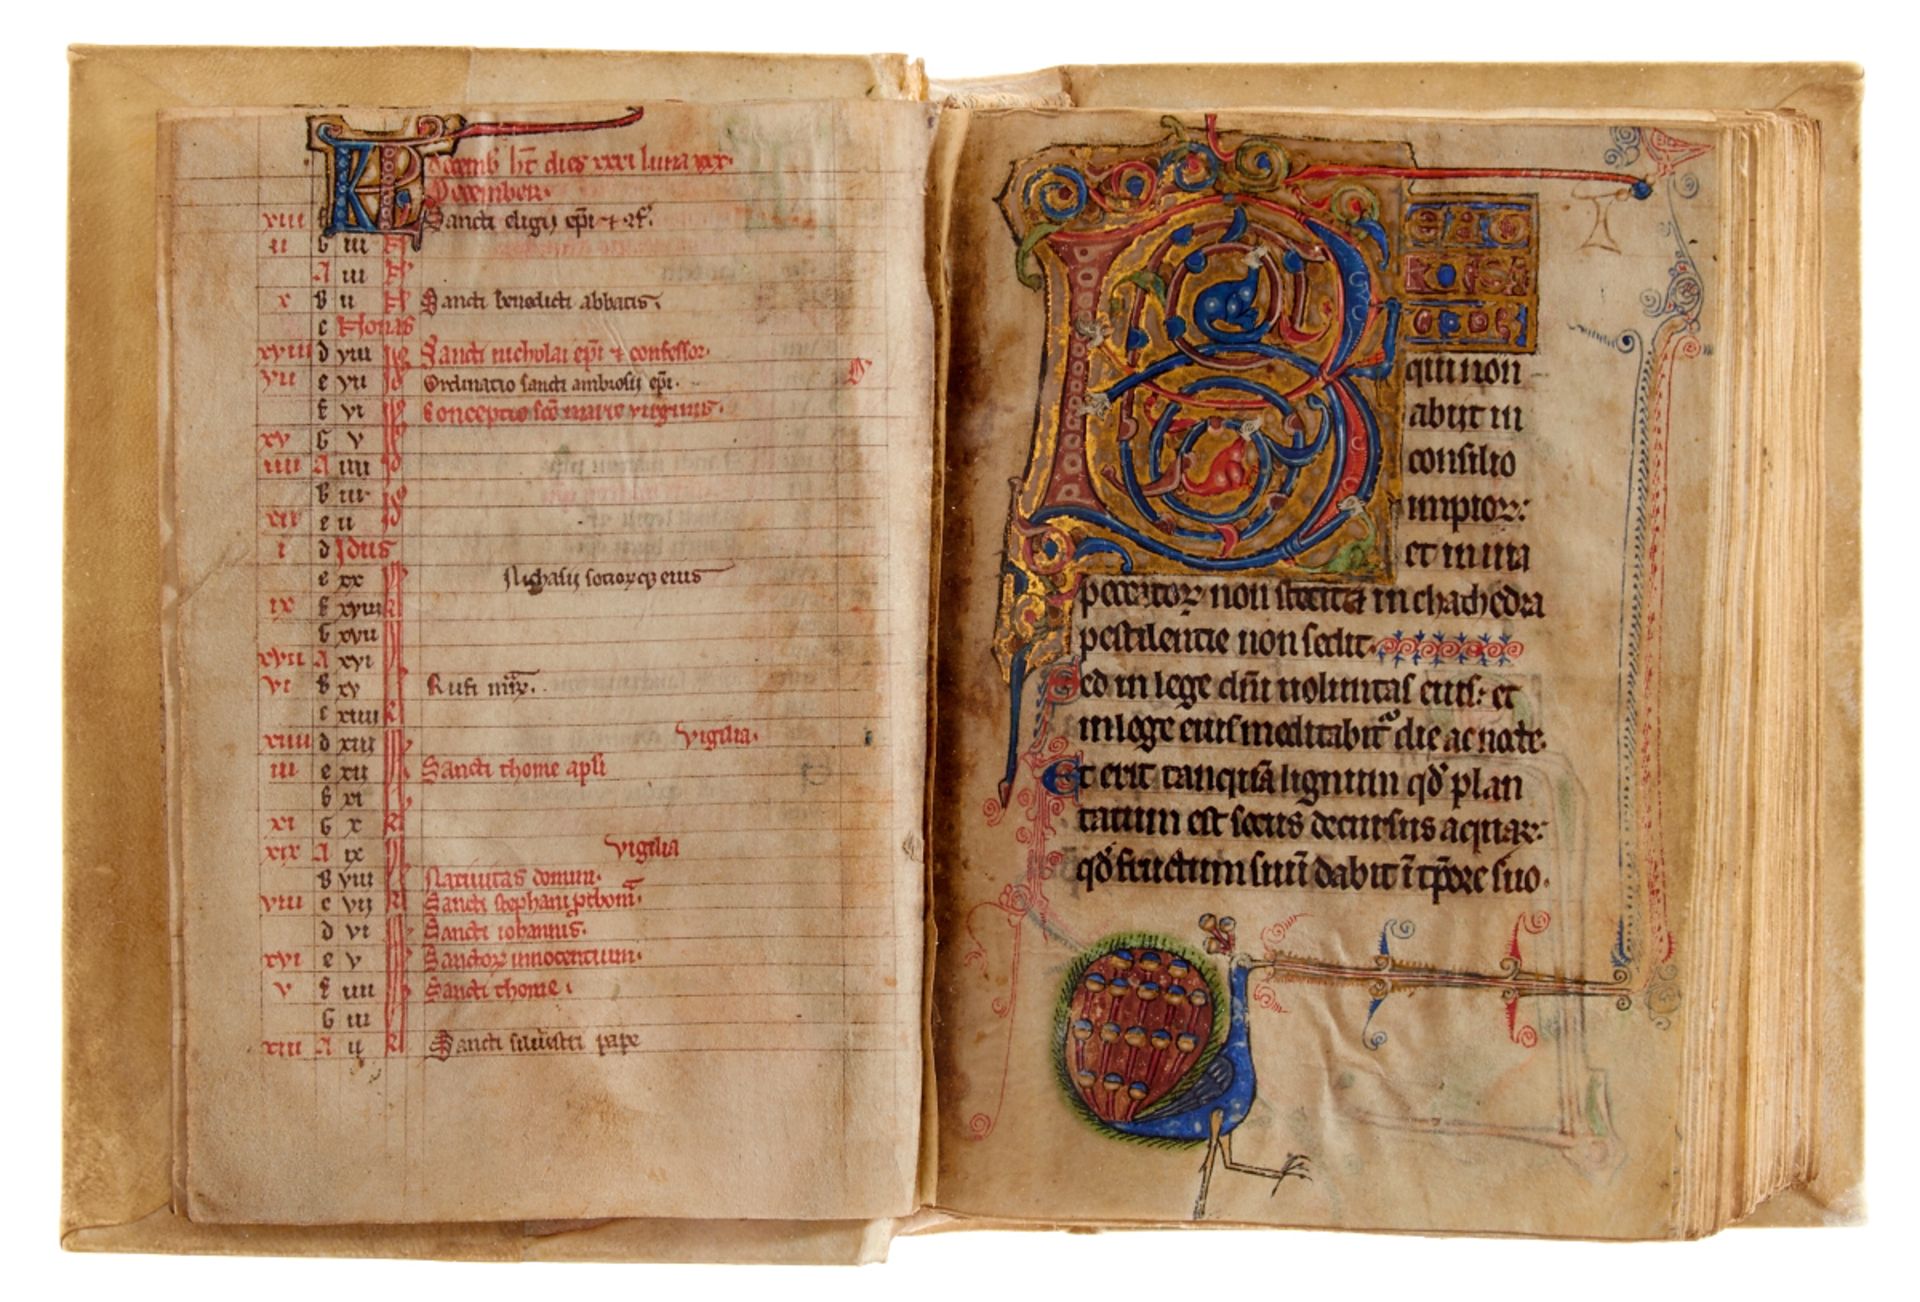 KL Decemb ht dies xxxi luna xxx.
December.
xiii f Sancti eligii epi
ii G iiii
A iii
x B ii Sancti benedicti abbatis
c Nonas
xviii d viii Sancti nicholai epi ⁊ confessor.
vii e vii Ordinatio sancti ambrosii epi.
f vi Conceptio sce marie virginis.
xv G v
iiii A iiii
B iii
xii c ii
i d Idus
e xx Nichasii sociorꝗ eius
ix f xviiii
G xvii
xvii A xvi
vi B xv Rufi mr.
c xiiii
xiiii d xiii vigilia.
iii e xii Sancti thome apli
f xi
xi G x
xix A ix vigilia
B viii Nativitas domini.
viii c vii Sancti stephani prthom
d vi Sancti iohannis.
xvi e v Sanctorꝝ innocentium.
v f iiii Sancti thome.
G iii
xiii A ii Sancti silvestri pape
B
EAT
qui non
abiit in
consilio
impiorꝝ:
et in uia
peccatorꝝ non stetit ⁊ in chathedra
pestilentie non sedit.
Sed in lege dni uoluntas eius: et
in lege eius meditabitr die ac nocte.
Et erit tanquā lignum qd plan
tatum est secus decursus aquarꝝ:
qd fructum suum dabit ī tpore suo.